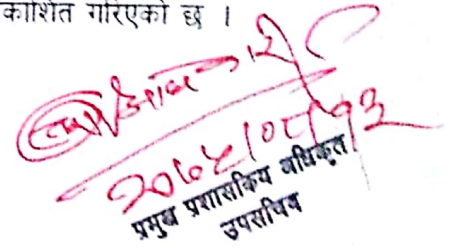 काशित गरिएको छ ।
२०७५/०८/१३
प्रमुख प्रशासकिय अधिकृत
उपसचिव